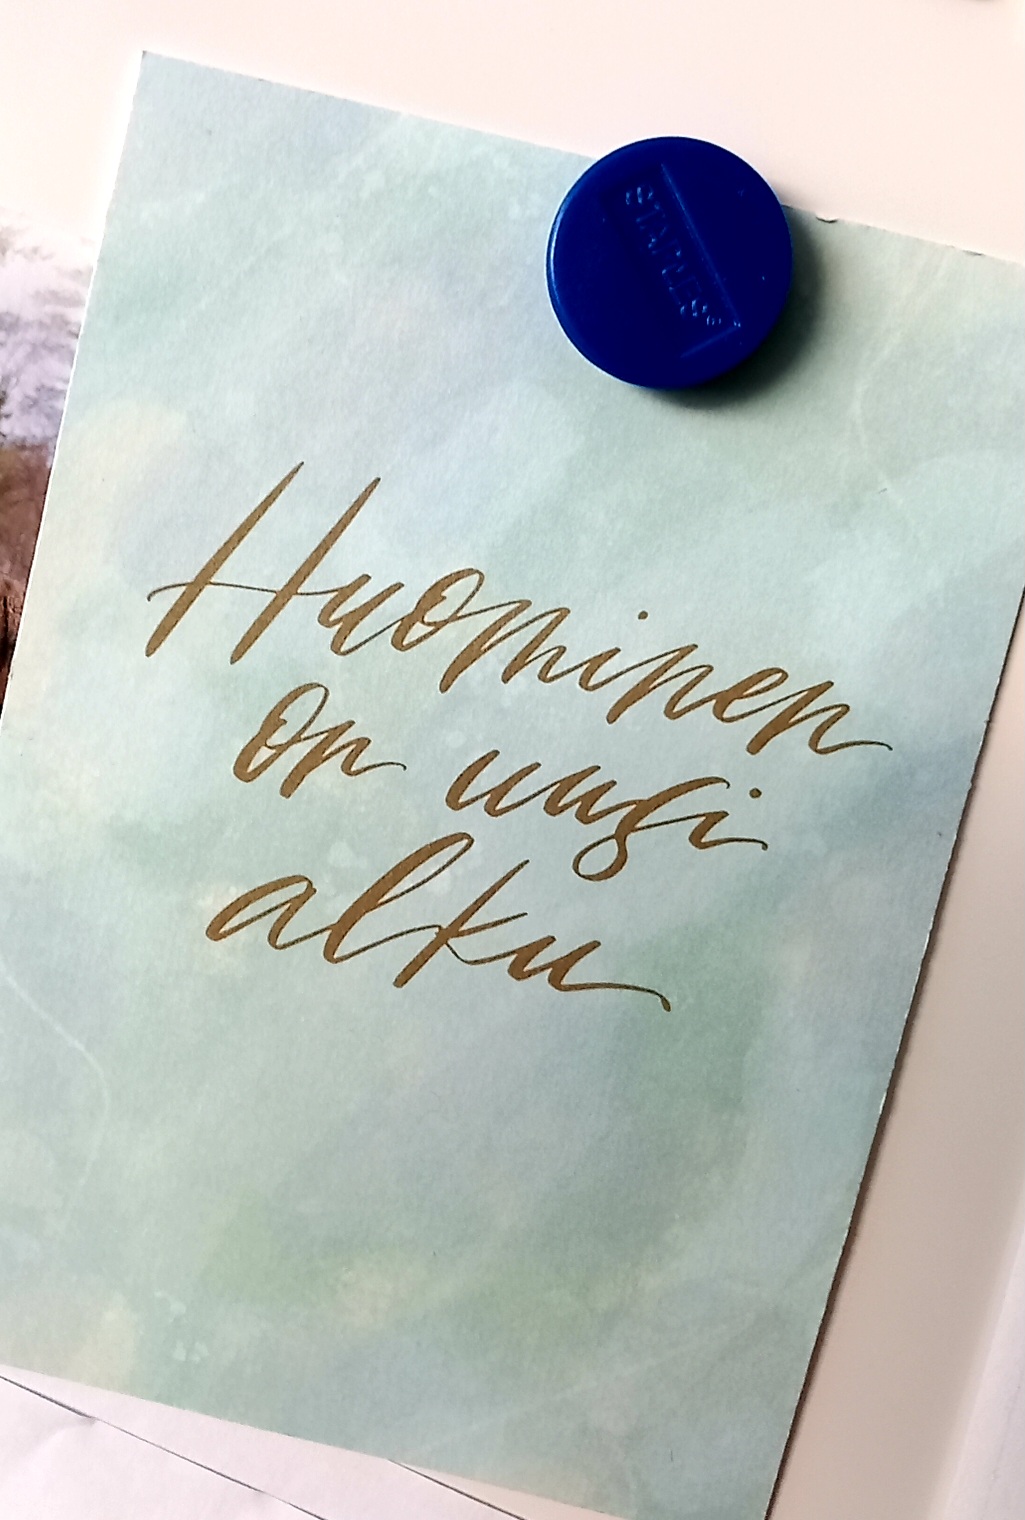 STAPLES
Huominen
on uusi
alku